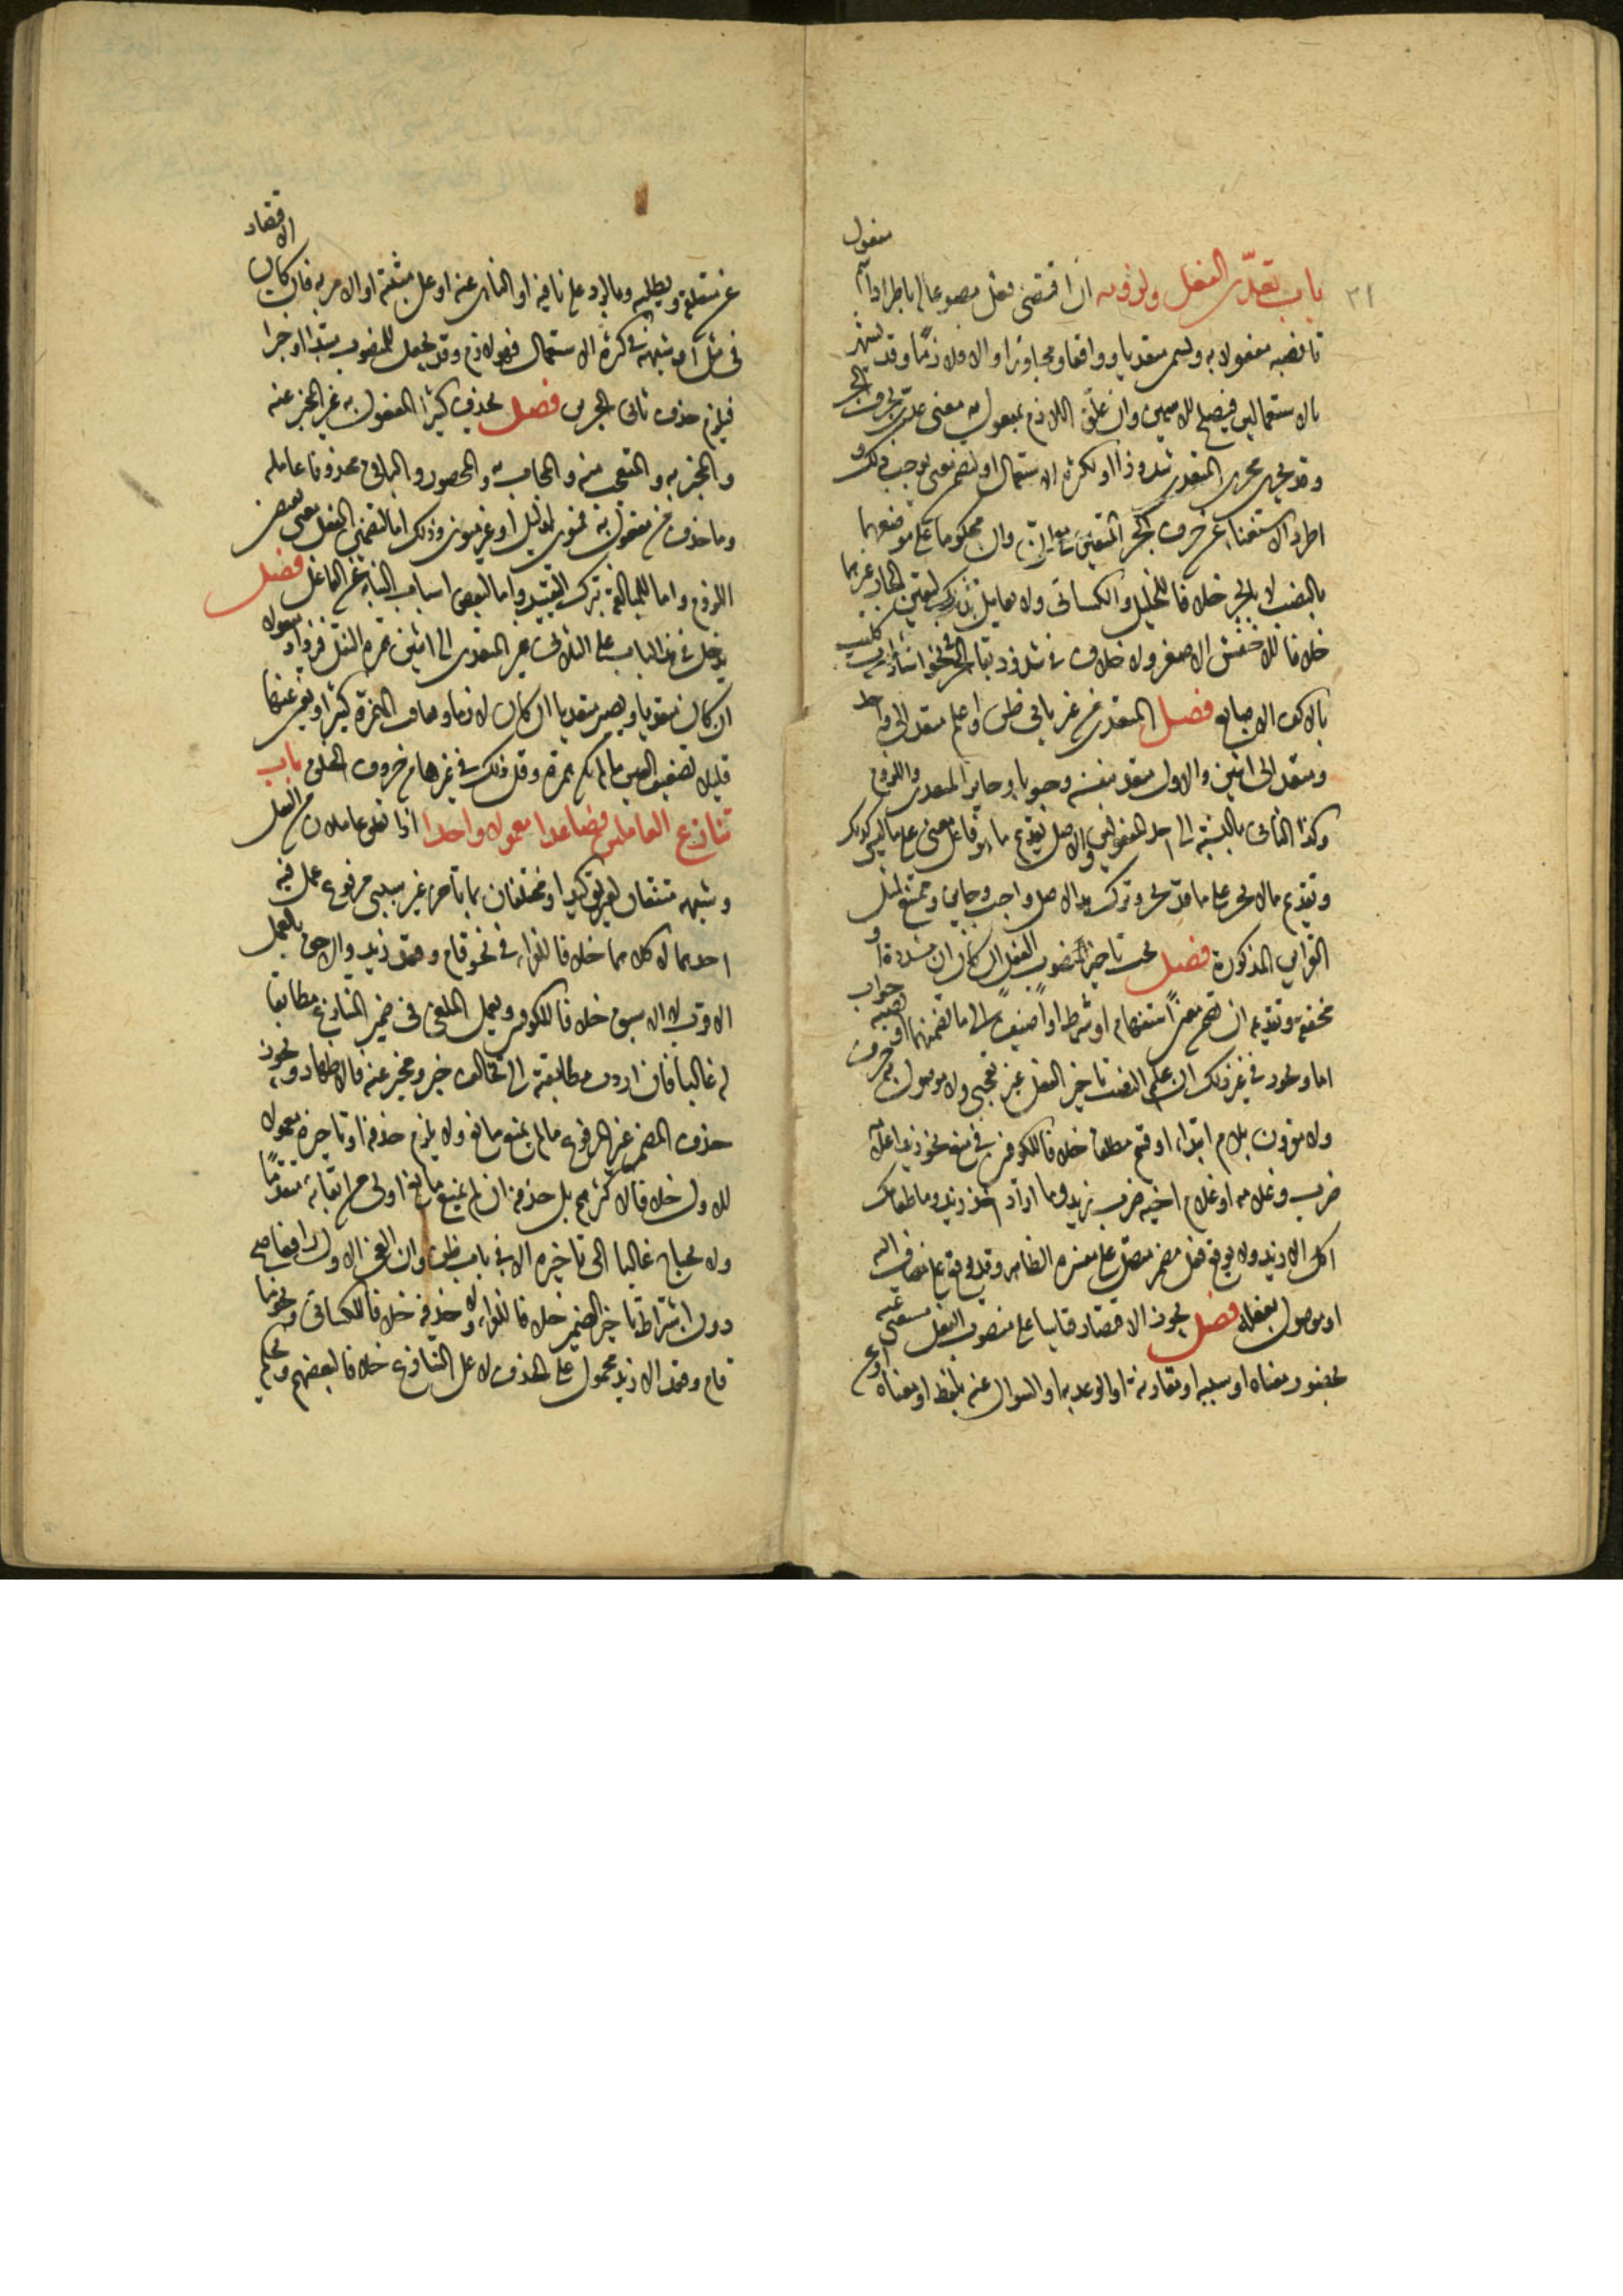 ٣١
باب تعدّى الفعل ولزومه ان اقتضى فعل مصوغا له باطراد اسم مفعول
تا نصبه مفعولا به وسمى متعديا وواقعا ومجاوزا والا فلازمًا وقد يشهر
بالاستعمالين فيصلح للاسمين وان علق اللازم بمفعول به معنى عدى بحرف الجر
وقد يجرى مجرى المتعدى شذوذا او لكثرة الاستعمال او لتضمن معنى يوجب ذلك و
اطرد الاستغناء عن حرف الجر المتعين مع ان وان محكوما على موضعهما
بالنصب لا بالجر خلافا للخليل والكسائى ولا يعامل بذلك لتعين الجار غيرهما
خلافا للاخفش الاصغر ولا خلاف فى شذوذ بقاء الجر فى نحو اشارت كليب
بالاكف الاصابع فصل المتعدى من غير بابى ظن واعلم متعد الى واحد
ومتعد الى اثنين والاول متعد بنفسه وجوبا وجايز التعدى واللزوم
وكذا الثانى بالنسبة الى احد المفعولين والاصل تقديم ما هو فاعل معنى على ما ليس كذلك
وتقديم ما لا يجر على ما قد يجر وترك هذا الاصل واجب وجايز وممتنع لمثل
القراين المذكورة فصل يجب تاخير منصوب الفعل ان كان ان مشددة او
مخففة وتقديمه ان تضمن معنى استفهام او شرط او اضيف الى ما تضمنهما او نصبه جواب
اما ويجوز فى غير ذلك ان علم النصب تاخير الفعل غير تعجبى ولا موصول به حرف
ولا مقرون بلام ابتداء او قسم مطلقا خلافا للكوفيين فى منع نحو زيدا غلامه
ضرب وغلامه او غلام اخيه ضرب زيد وما اراد اخذ زيد وما طعامك
اكل الا زيد ولا يوقع فعل مضمر متصل على مفسره الظاهر وقد يوقع على مضاف اليه
او موصول بفعله فصل يجوز الاقتصار قياسا على منصوب الفعل مستغنى عنه
بحضور معناه او سببه او مقارنه او الوعد به او السوال عنه بلفظه او معناه او عن
عن متعلقه وبطلبه وبالرد على نافيه او الناهى عنه او على مثبته او الامر به فان كان الاقتصار
فى مثل او شبهه فى كثرة الاستعمال فهو لازم وقد يجعل المنصوب مبتدا او خبرا
فيلزم حذف ثانى الجزءين فصل يحذف كثيرا المفعول به غير المخبر عنه
والمخبر به والمتعجب منه والمجاب به والمحصور والباقى محذوفا عامله
وما حذف من مفعول به فمنوى لدليل او غير منوى وذلك اما لتضمين الفعل معنى يقتضى
اللزوم واما للمبالغة بترك التقييد واما لبعض اسباب النيابة عن الفاعل فصل
يدخل فى هذا الباب على الثلاثى غير المتعدى الى اثنين همزة النقل فيزداد مفعولا
ان كان متعديا ويصير متعديا ان كان لازما ويعاقب الهمزة كثيرا ويغنى عنها
قليلا تضعيف العين ما لم تكن همزة وقل ذلك فى غيرها من حروف الحلق باب
تنازع العاملين فصاعدا معمولا واحدا اذا تعلق عاملان من الفعل
وشبهه متفقان لغير توكيد او مختلفان بما تاخر غير سببى مرفوع عمل فيه
احدهما لا كلاهما خلافا للفراء فى نحو قام وقعد زيد والاحق بالعمل
الاقرب لا الاسبق خلافا للكوفيين ويعمل الملغى فى ضمير المتنازع مطابقا
له غالبا فان ادت مطابقته الى تخالف خبر ومخبر عنه فالاظهار ويجوز
حذف المضمر غير المرفوع ما لم يمنع مانع ولا يلزم حذفه او تاخيره معمولا
للاول خلافا لاكثرهم بل حذفه ان لم يمنع مانع اولى من ابقائه متقدمًا
ولا يحتاج غالبا الى تاخيره الا فى باب ظن وان الغى الاول رافعا صح
دون اشتراط تاخير الضمير خلافا للفراء ولا حذفه خلافا للكسائى ونحو ما
قام وقعد الا زيد محمول على الحذف لا على التنازع خلافا لبعضهم ويحكم